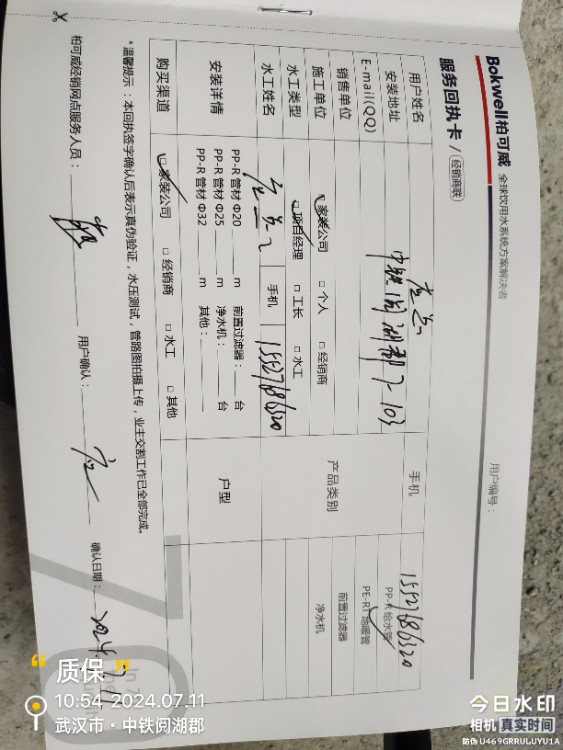 Bokwell柏可威 全球饮用水系统方案解决者
服务回执卡 / 经销商联
用户编号：
用户姓名
手机 15527686320
安装地址 中铁阅湖郡7-103
E-mail(QQ)
产品类别
PP-R 给水管
PE-RT 地暖管
前置过滤器
净水机
销售单位
施工单位 家装公司 □ 个人 □ 经销商
水工类型 □ 项目经理 □ 工长 □ 水工
水工姓名 手机 15527686320
安装详情
PP-R 管材 Φ20 m 前置过滤器： 台
PP-R 管材 Φ25 m 净水机： 台
PP-R 管材 Φ32 m 其他：
户型
购买渠道 □ 家装公司 □ 经销商 □ 水工 □ 其他
* 温馨提示：本回执签字确认后表示真伪验证，水压测试，管路图拍摄上传，业主交割工作已全部完成。
柏可威经销网点服务人员： 用户确认： 确认日期：
“ 质保 ”
10:54 2024.07.11
武汉市·中铁阅湖郡
今日水印
相机 真实时间
防伪 U469GRRULUYU1A